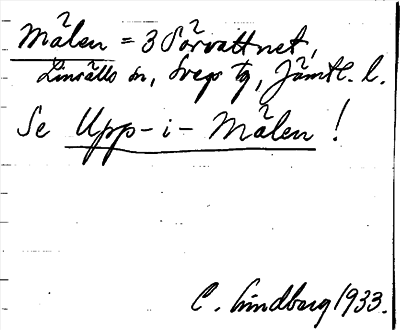 Målen = 3 Sörvattnet,
Linsälls sn, Svegs tg, Jämtl. l.
Se Upp-i-Målen!
C. Lindberg 1933.